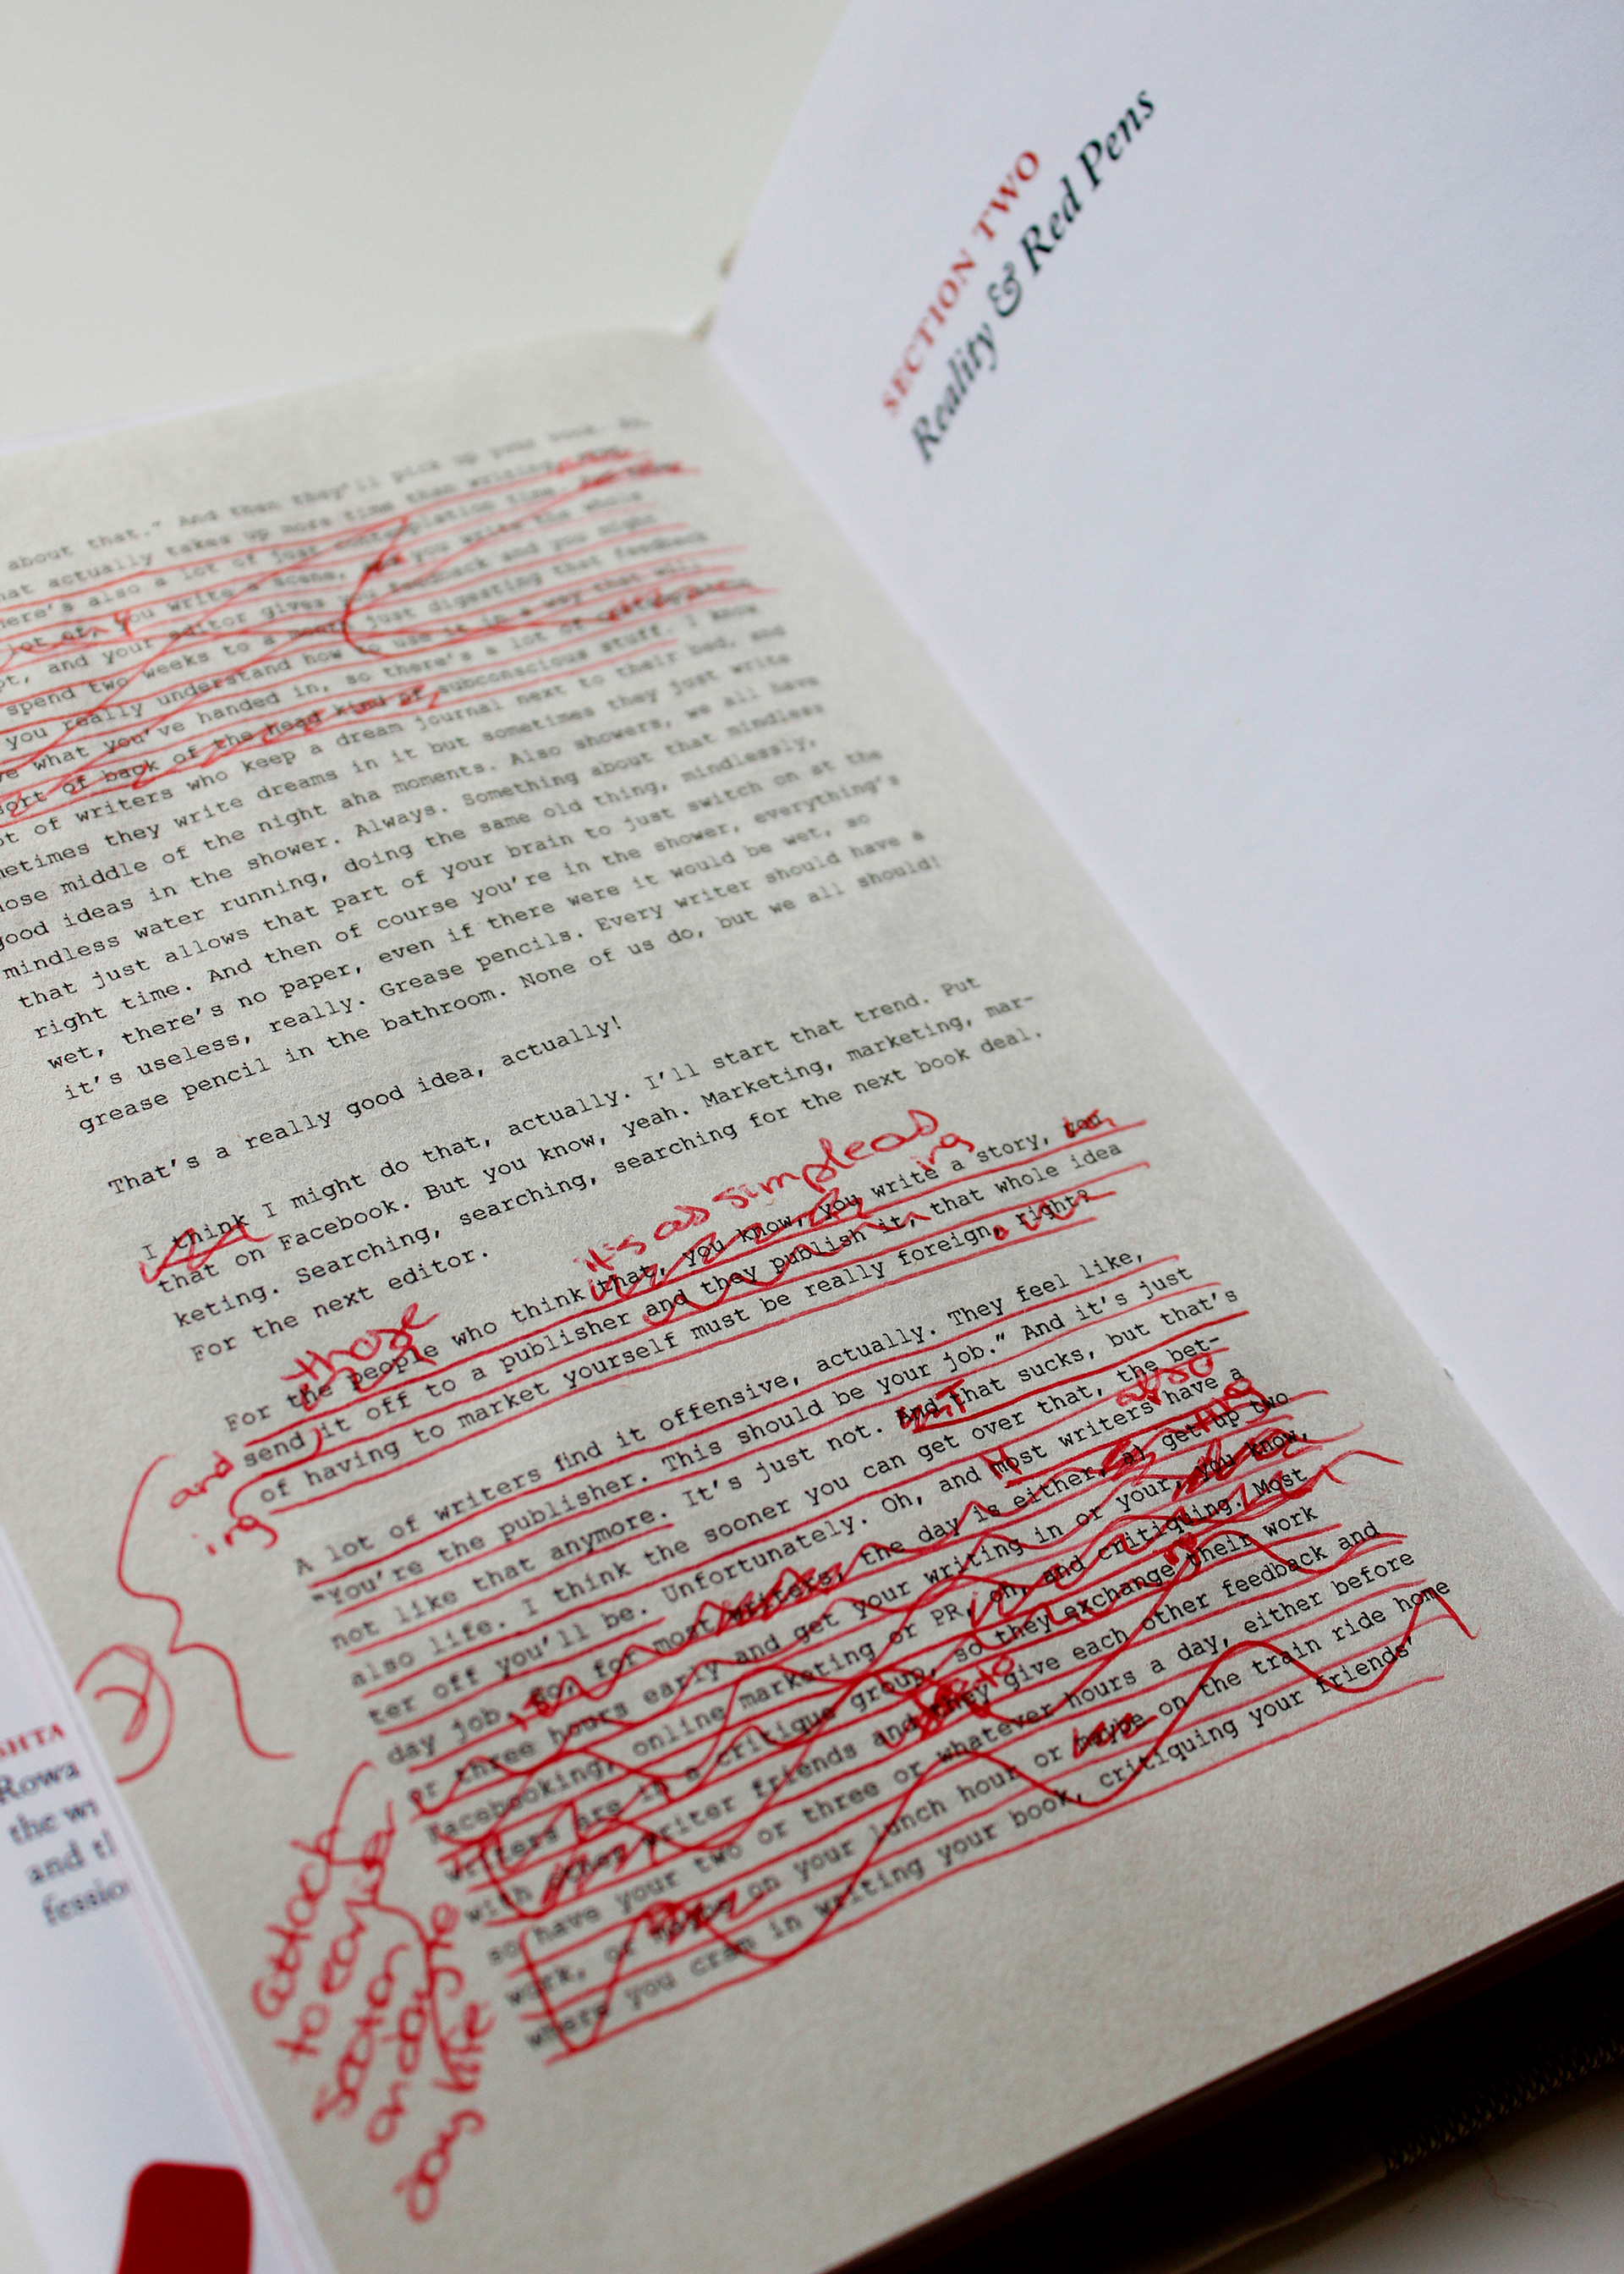 about that." And then they'll pick up your book. So,
hat actually takes up more time than writing.
here's also a lot of just contemplation time.
lot of, you write a scene, you write the whole
pt, and your editor gives you feedback and you might
spend two weeks to a month just digesting that feedback
you really understand how to use it in a way that will
ve what you've handed in, so there's a lot of
sort of back of the head kind of, subconscious stuff. I know
ot of writers who keep a dream journal next to their bed, and
metimes they write dreams in it but sometimes they just write
hose middle of the night aha moments. Also showers, we all have
good ideas in the shower. Always. Something about that mindless
mindless water running, doing the same old thing, mindlessly,
that just allows that part of your brain to just switch on at the
right time. And then of course you're in the shower, everything's
wet, there's no paper, even if there were it would be wet, so
it's useless, really. Grease pencils. Every writer should have a
grease pencil in the bathroom. None of us do, but we all should!
That's a really good idea, actually!
I think I might do that, actually. I'll start that trend. Put
that on Facebook. But you know, yeah. Marketing, marketing, mar-
keting. Searching, searching, searching for the next book deal.
For the next editor.
it's as simple as
ing
those
For the people who think that, you know, you write a story, you
and
send it off to a publisher and they publish it, that whole idea
ing
of having to market yourself must be really foreign, right?
A lot of writers find it offensive, actually. They feel like,
"You're the publisher. This should be your job." And it's just
not like that anymore. It's just not. And that sucks, but that's
also life. I think the sooner you can get over that, the bet-
also
ter off you'll be. Unfortunately. Oh, and most writers have a
day job. So, for most writers, the day is either, a) get up two
or three hours early and get your writing in or your, you know,
Facebooking, online marketing or PR, oh, and critiquing. Most
writers are in a critique group, so they exchange their work
with other writer friends and they give each other feedback and
so have your two or three or whatever hours a day, either before
work, or maybe on your lunch hour or maybe on the train ride home
where you cram in writing your book, critiquing your friends'
attach
to earlier
section
on day to
day life
SHTA
Rowa
the wr
and tl
fessio
SECTION TWO
Reality & Red Pens